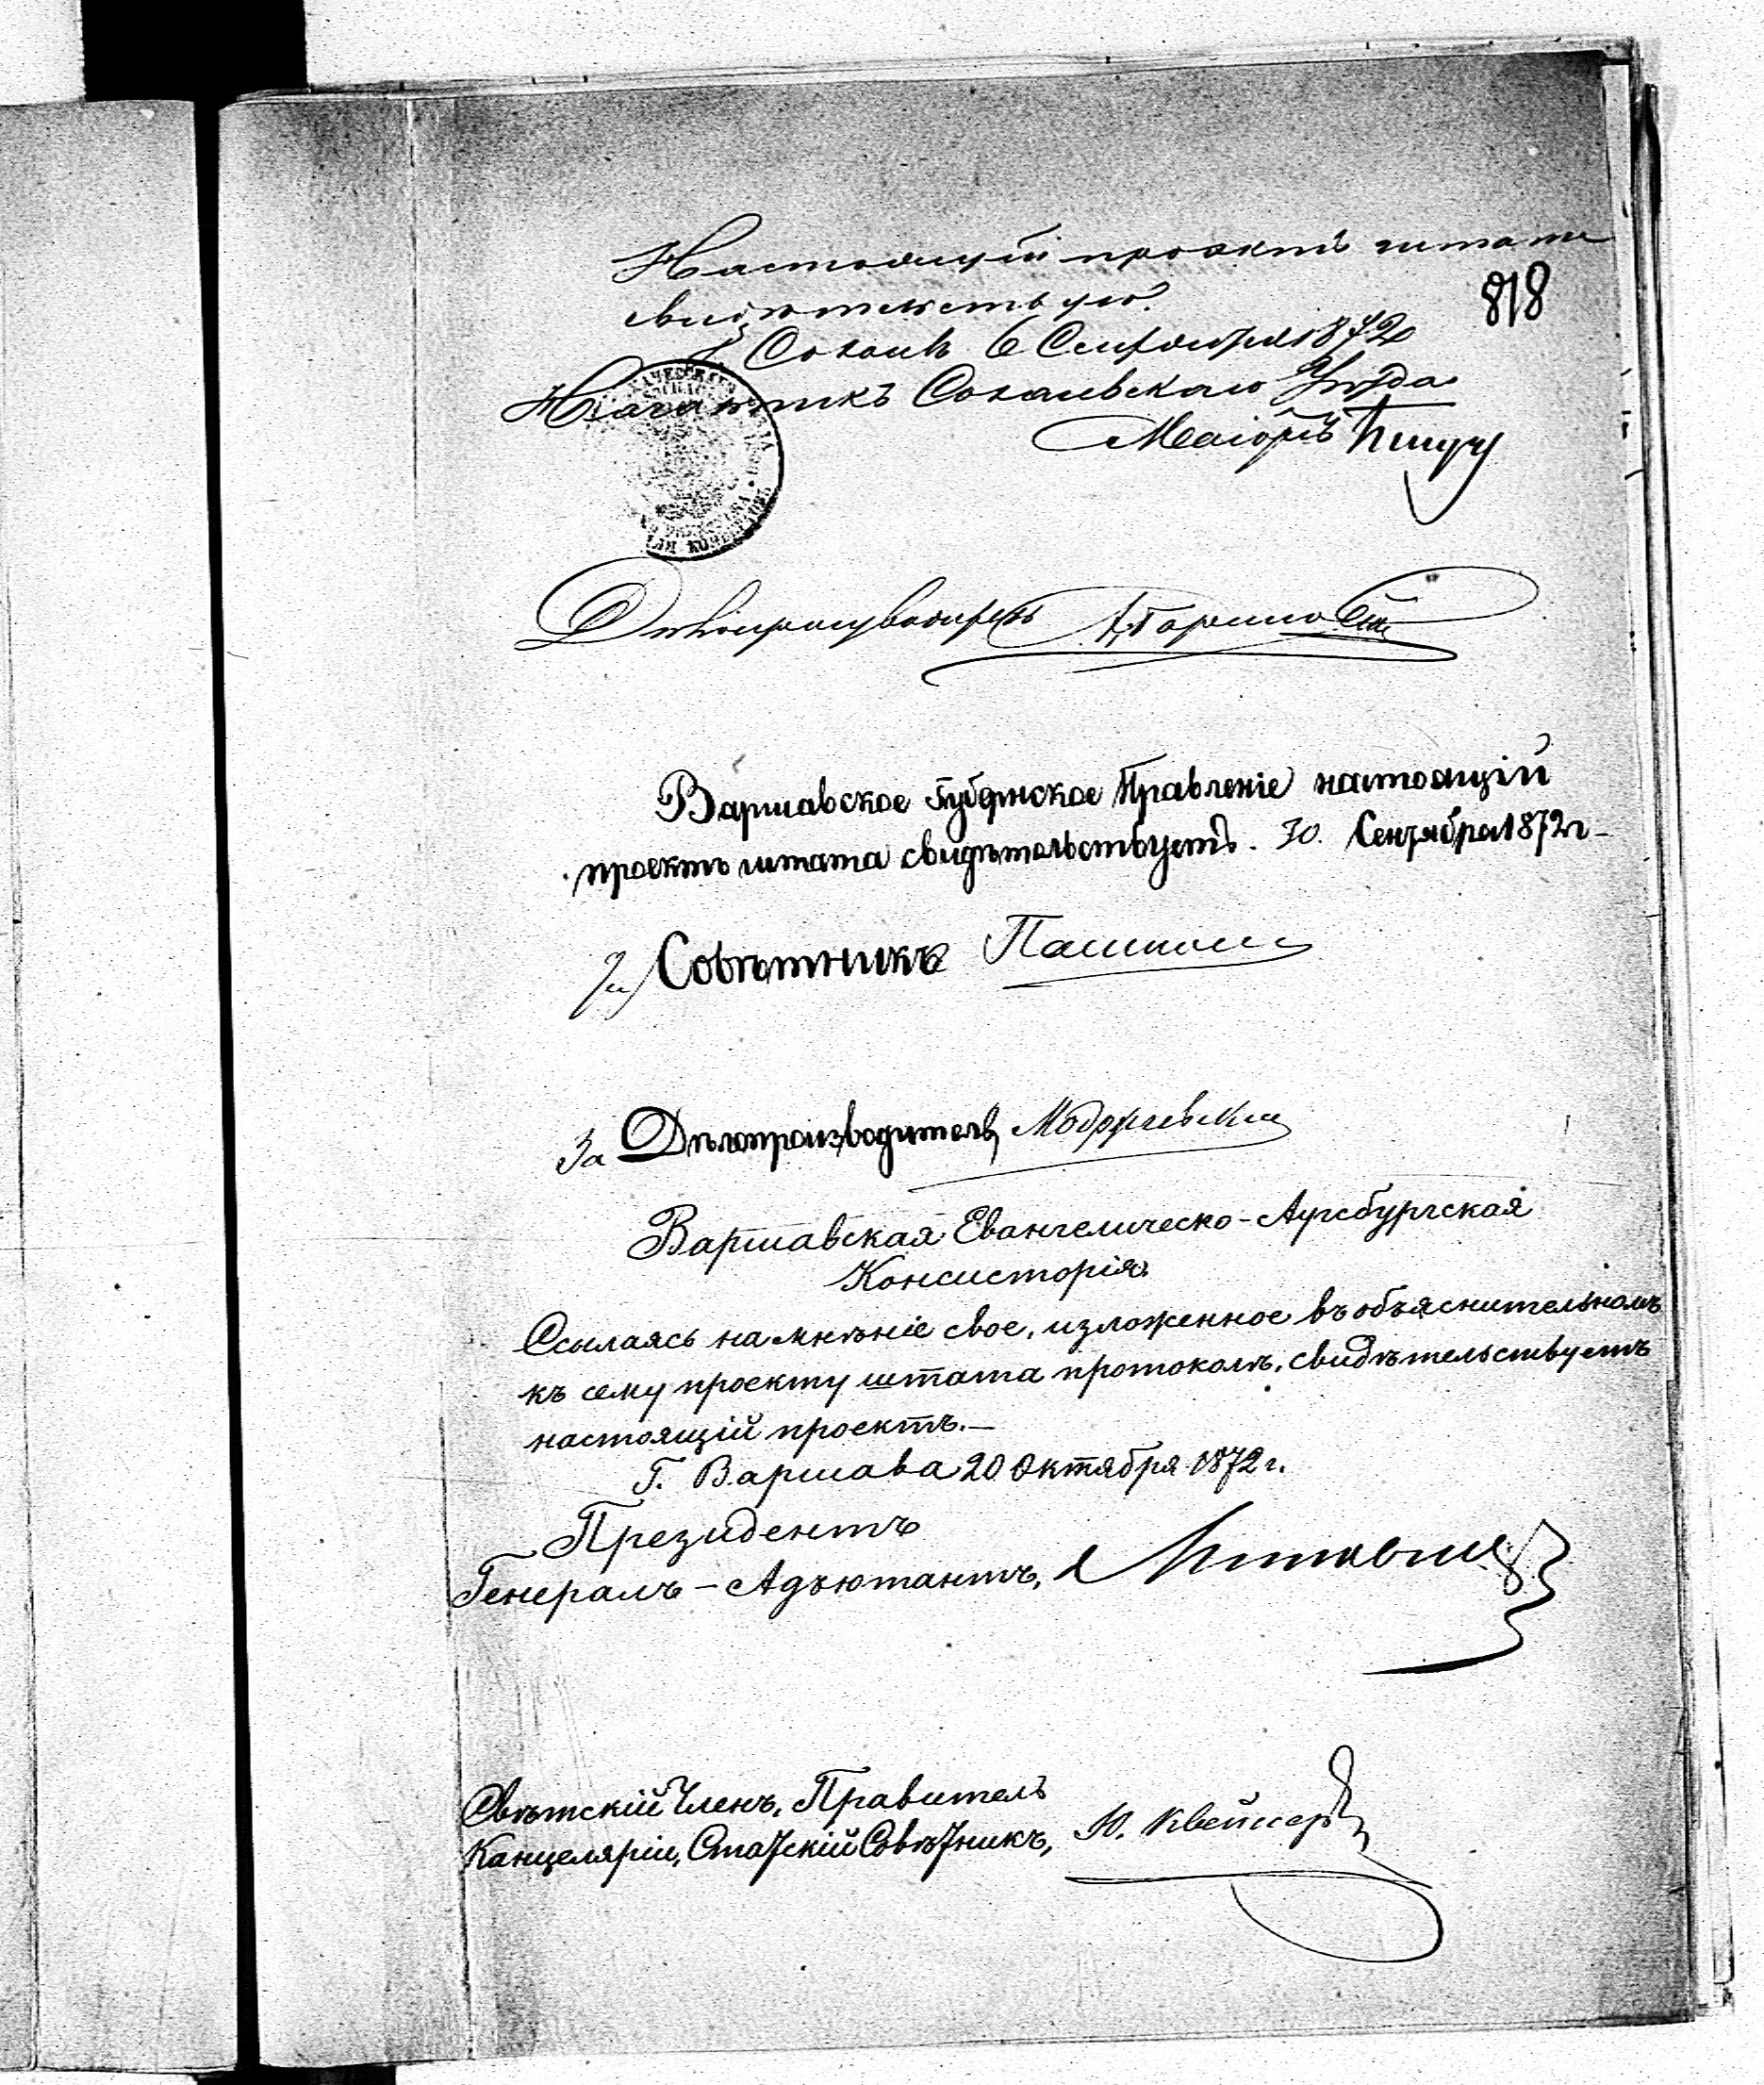 Настоящій проектъ штата
818
свидѣтельствую.
6 Сентября 1872
Начальникъ Сохачевскаго Уѣзда
Маіоръ
Дѣлопроизводитель
Варшавское Губернское Правленіе настоящій
проектъ штата свидѣтельствуетъ. 30. Сентября 1872 г.
Совѣтникъ
За Дѣлопроизводителя Модржевскій
Варшавская Евангелическо-Аугсбургская
Консисторія
Ссылаясь на мнѣніе свое, изложенное въ объяснительномъ
къ сему проекту штата протоколѣ, свидѣтельствуетъ
настоящій проектъ.—
Г. Варшава 20 Октября 1872 г.
Президентъ
Генералъ-Адъютантъ,
Свѣтскій Членъ, Правитель
Канцеляріи, Статскій Совѣтникъ,